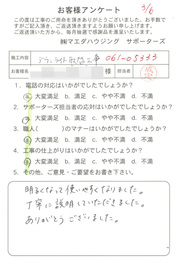 3/6
お客様アンケート
この度は工事のご用命を頂きありがとうございました。お手数で
すがご記入頂き、ご返送頂きますようお願い申し上げます。
ご返送頂いた方から、毎月抽選で感謝品を差し上げいたします。
㈱マエダハウジング サポーターズ
施工内容
061-05333
お名前
様
担当者
1. 電話の対応はいかがでしたでしょうか?
大変満足 B. 満足 C. やや不満 D. 不満
2. サポーターズ担当者の応対はいかがでしたでしょうか?
大変満足 B. 満足 C. やや不満 D. 不満
3. 職人( )のマナーはいかがでしたでしょうか?
大変満足 B. 満足 C. やや不満 D. 不満
4. 工事の仕上がりはいかがでしたでしょうか?
大変満足 B. 満足 C. やや不満 D. 不満
5. その他、ご意見・ご要望をお書き下さい。
明るくなって使いやすくなりました。
丁寧に説明していただきました。
ありがとうございました。